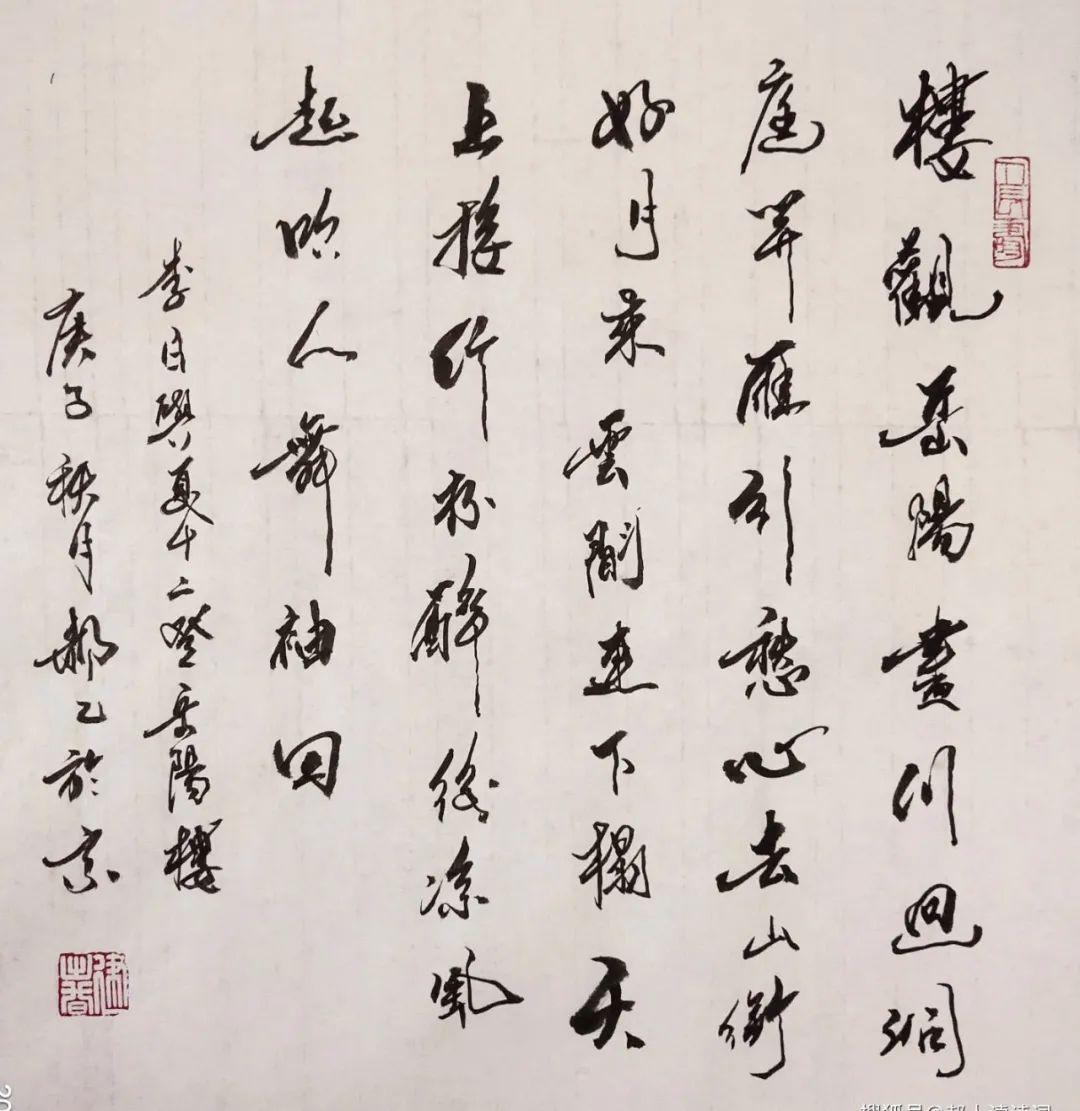 樓觀岳陽盡川迴洞
庭開雁引愁心去山銜
好月來雲間連下榻天
上接行杯醉後涼風
起吹人舞袖回
李白與夏十二登岳陽樓
庚子秋月郝乙於京